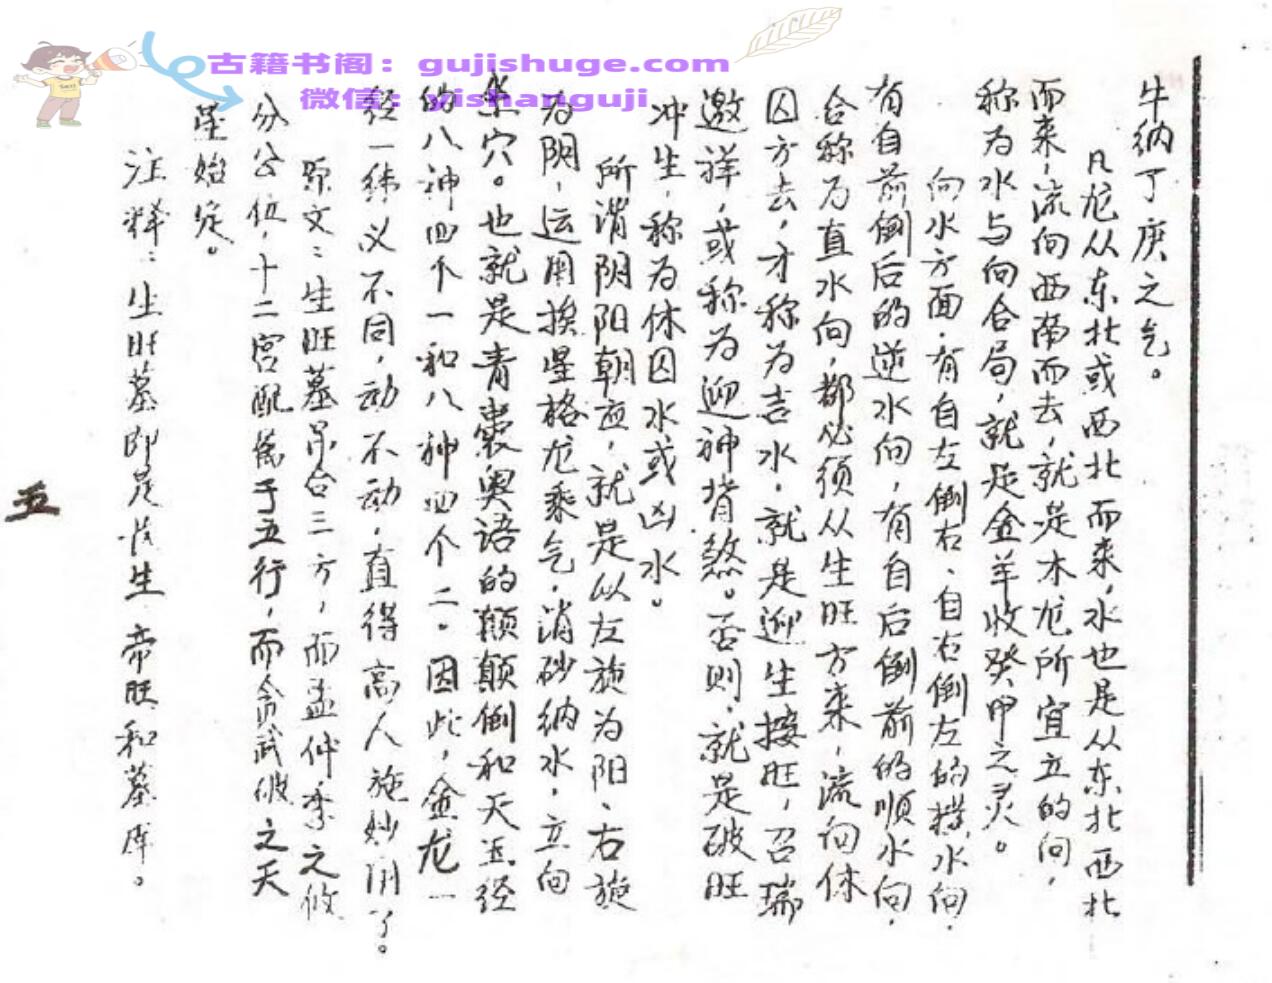 古籍书阁：gujishuge.com
微信：yishanguji
牛纳丁庚之气。
凡龙从东北或西北而来，水也是从东北西北
而来，流向西南而去，就是木龙所宜立的向，
称为水与向合局，就是金羊收癸甲之灵。
向水方面，有自左倒右、自右倒左的横水向，
有自前倒后的逆水向，有自后倒前的顺水向，
合称为直水向，都必须从生旺方来，流向休
囚方去，才称为吉水，就是迎生接旺，召瑞
邀祥，或称为迎神背煞。否则，就是破旺
冲生，称为休囚水或凶水。
所谓阴阳朝迎，就是以左旋为阳、右旋
为阴，运用挨星格龙乘气，消砂纳水，立向
坐穴。也就是青囊奥语的颠颠倒和天玉经
的八神四个一和八神四个二。因此，金龙一
经一纬义不同，动不动，直得高人施妙用了。
原文：生旺墓吊合三方，而孟仲季之攸
分公位，十二宫配旧于五行，而贪武破之天
星始定。
注释：生旺墓即是长生帝旺和墓库。
五